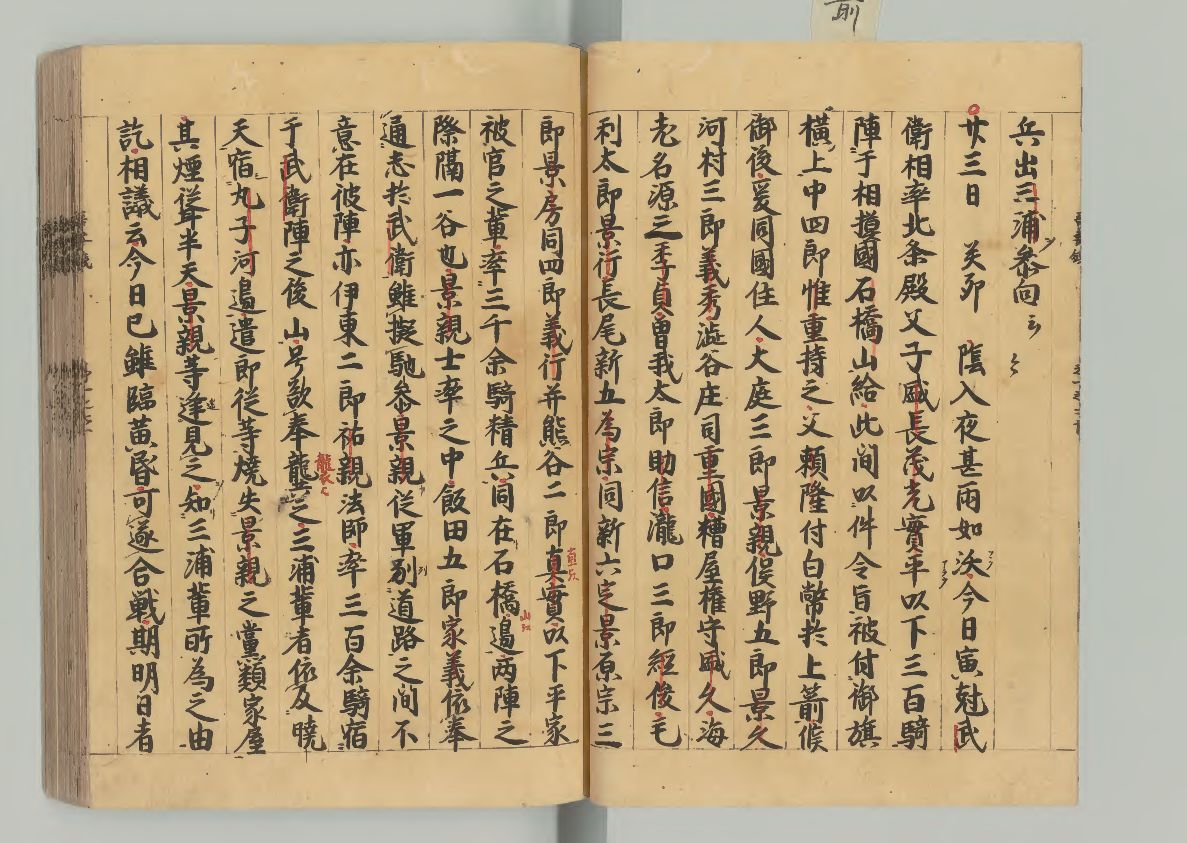 兵出三浦参向云々
廿三日 癸卯 陰入夜甚雨如沃今日寅尅武
衛相率北条殿父子盛長茂光實平以下三百騎
陣于相摸國石橋山給此間以件令旨被付御旗
横上中四郎惟重持之又頼隆付白幣於上箭候
御後爰同國住人大庭三郎景親俣野五郎景久
河村三郎義秀澁谷庄司重國糟屋権守盛久海
老名源三季貞曽我太郎助信瀧口三郎経俊毛
利太郎景行長尾新五為宗同新六定景原宗三
郎景房同四郎義行并熊谷二郎真實以下平家
被官之輩率三千余騎精兵同在石橋邉両陣之
際隔一谷也景親士率之中飯田五郎家義依奉
通志於武衛雖擬馳参景親従軍列道路之間不
意在彼陣亦伊東二郎祐親法師率三百余騎宿
于武衛陣之後山号欲奉龍之三浦輩者依及暁
天宿丸子河邉遣郎従等焼失景親之黨類家屋
其煙聳半天景親等遥見之知三浦輩所為之由
訖相議云今日已雖臨黄昏可遂合戦期明日者